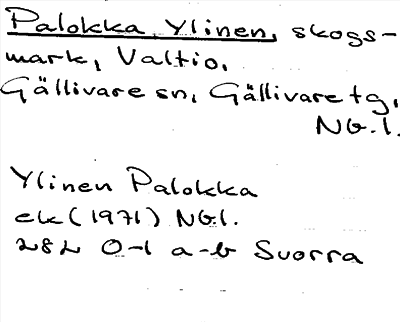 Palokka, Ylinen, skogs-
mark, Valtio,
Gällivare sn, Gällivare tg,
Nb.l.
Ylinen Palokka
ek (1971) Nb.l.
28L 0-1 a-b Suorra